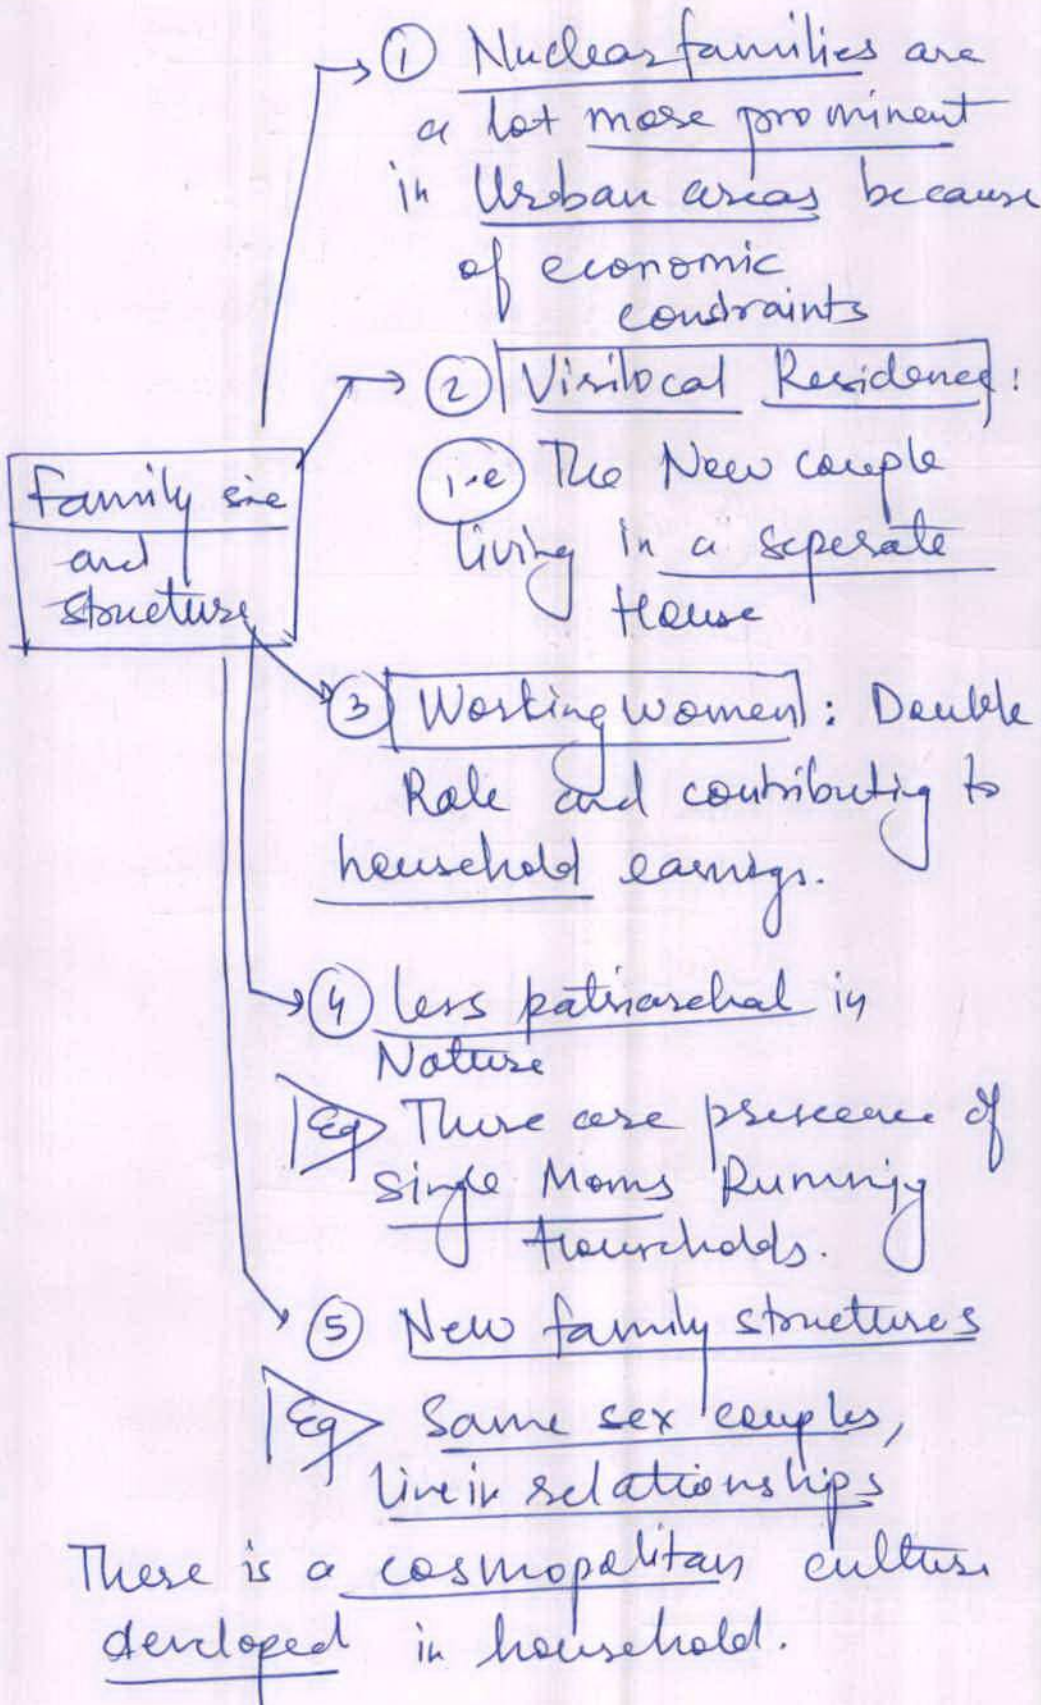 ① Nuclear families are
a lot more prominent
in Urban areas because
of economic
constraints
② Virilocal Residence:
i.e The New couple
living in a seperate
House
Family size
and
structure
③ Working Women: Double
Role and contributing to
household earnings.
④ less patriarchal in
Nature
Eg There are presence of
Single Moms Running
Households.
⑤ New family structures
Eg Same sex couples,
live in relationships
There is a cosmopolitan culture
developed in household.